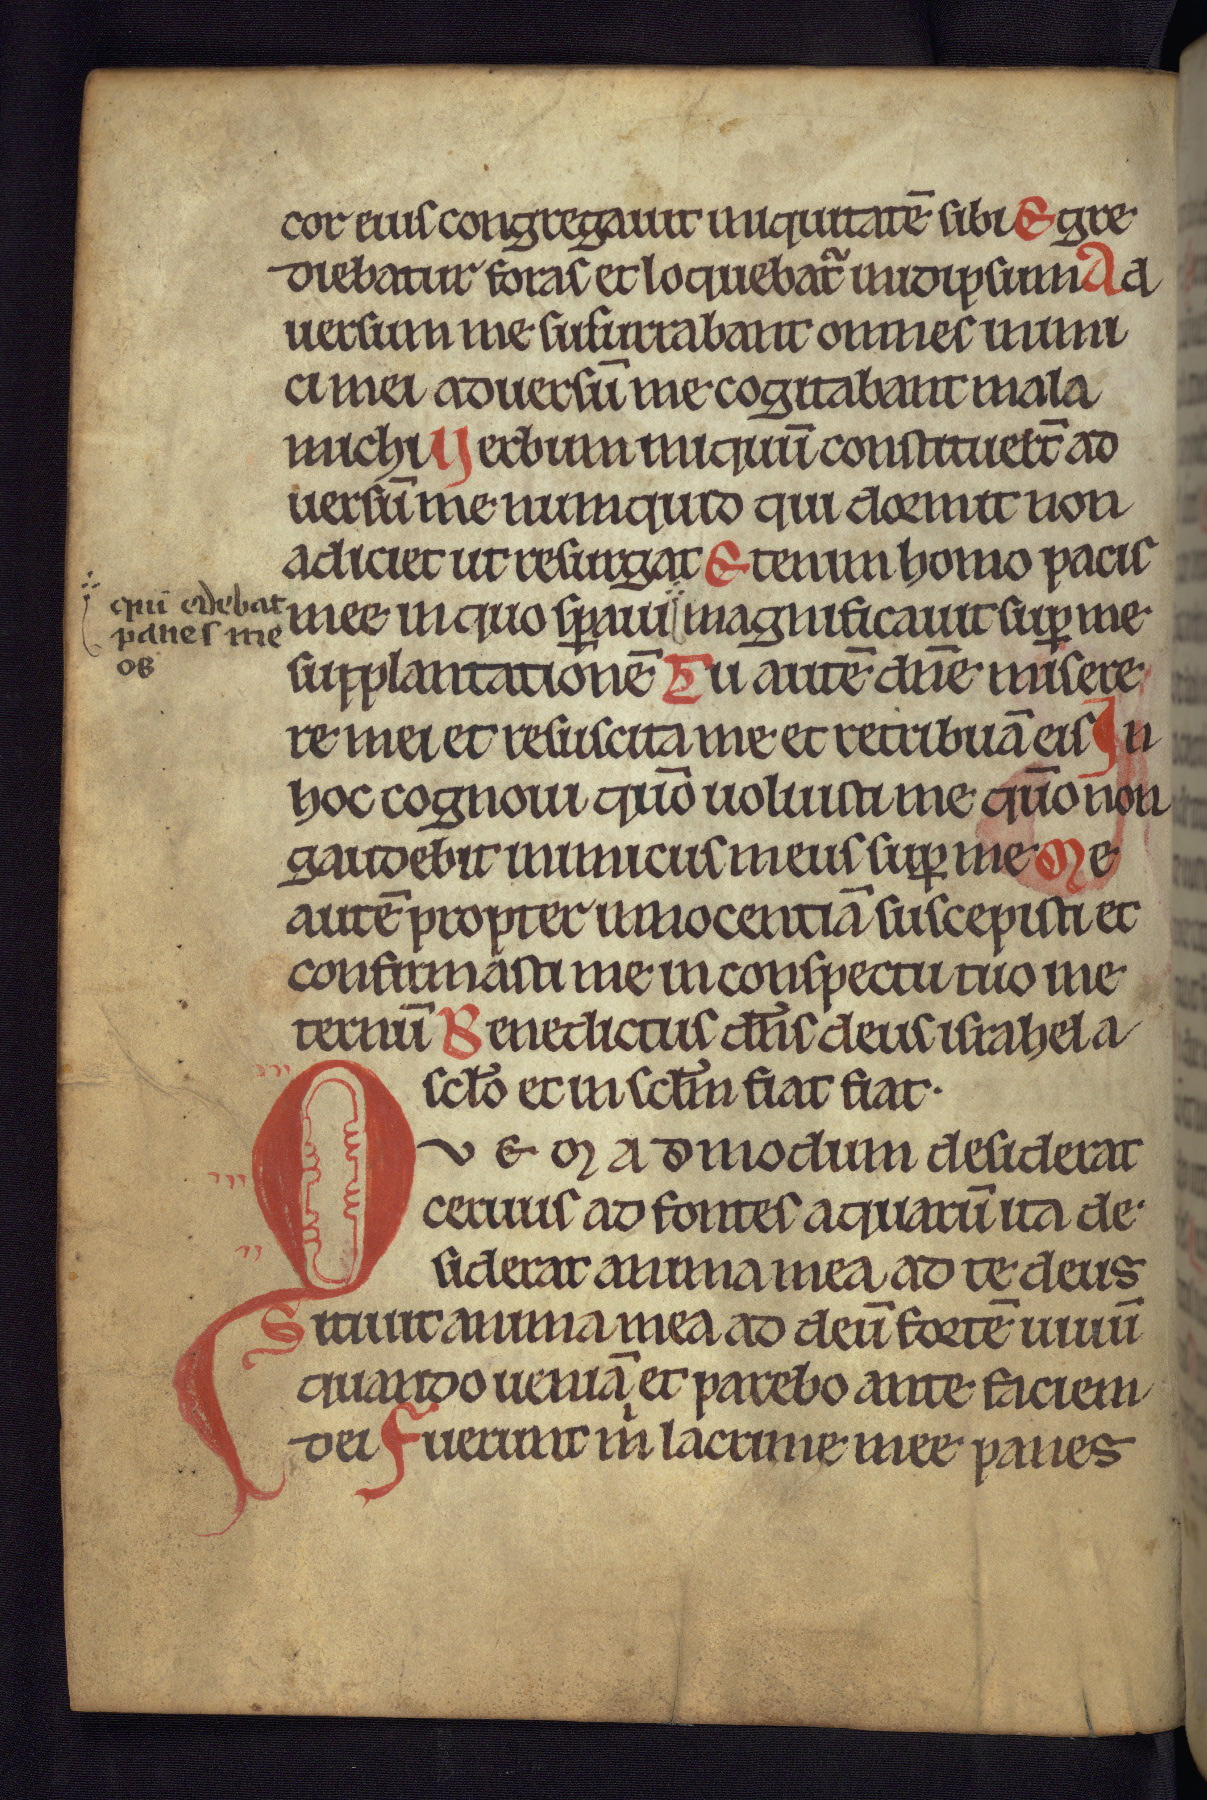 cor eius congregauit iniquitatē sibi Egre
diebatur foras et loquebat᷑ inidipsum Ad
uersum me susurrabant omnes inimi
ci mei aduersū me cogitabant mala
michi Uerbum iniquū constituer̄t ad
uersū me numquid qui dormit non
adiciet ut resurgat Etenim homo pacis
qui edebat
panes me
os
mee in quo sꝑaui magnificauit suꝑ me
supplantationē Tu autē dn̄e misere
re mei et resuscita me et retribuā eis In
hoc cognoui qūo uoluisti me qūo non
gaudebit inimicus meus suꝑ me Me
autē propter innocentiā suscepisti et
confirmasti me in conspectu tuo in e
ternū Benedictus dn̄s deus israhel a
scl̄o et in scl̄m fiat fiat.
QVEMADmodum desiderat
ceruus ad fontes aquarū ita de
siderat anima mea ad te deus
Sitiuit anima mea ad deū fortē uiuū
quando ueniā et parebo ante faciem
dei Fuerunt m̄ lacrime mee panes